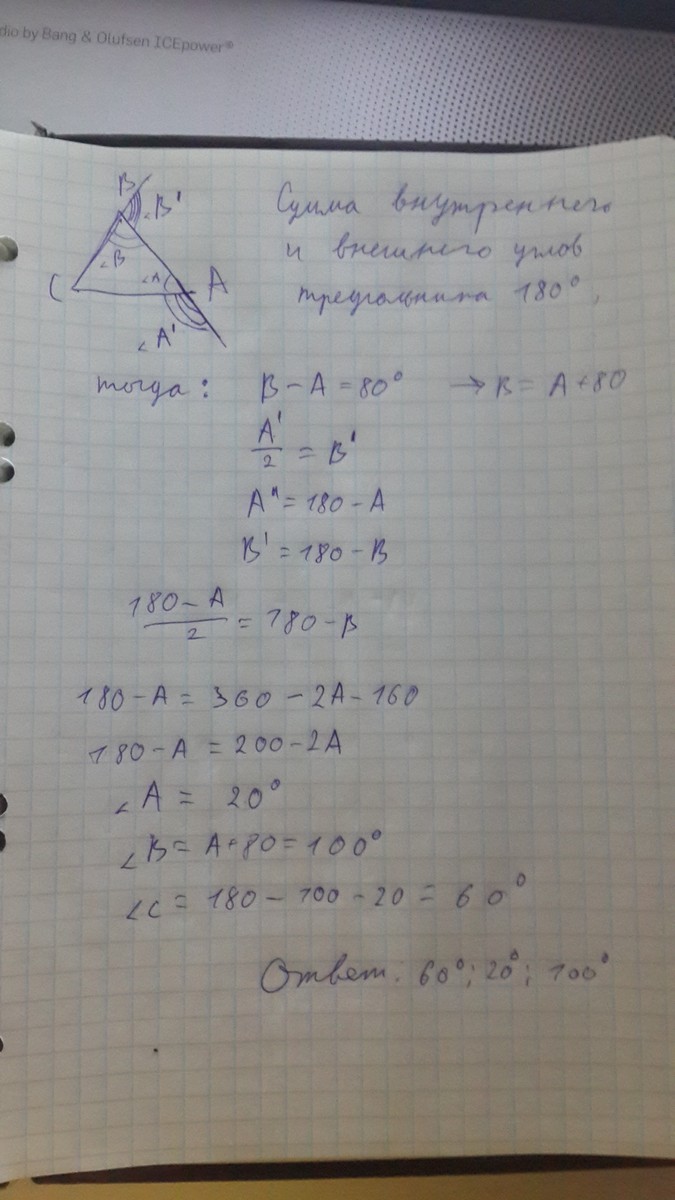 dio by Bang & Olufsen ICEpower®
B
∠B'
∠B
C
∠A
A
∠A'
Сумма внутреннего
и внешнего углов
треугольника 180°,
тогда: B - A = 80° → B = A + 80
A'/2 = B'
A" = 180 - A
B' = 180 - B
(180 - A)/2 = 180 - B
180 - A = 360 - 2A - 160
180 - A = 200 - 2A
∠A = 20°
∠B = A + 80 = 100°
∠C = 180 - 100 - 20 = 60°
Ответ: 60°; 20°; 100°